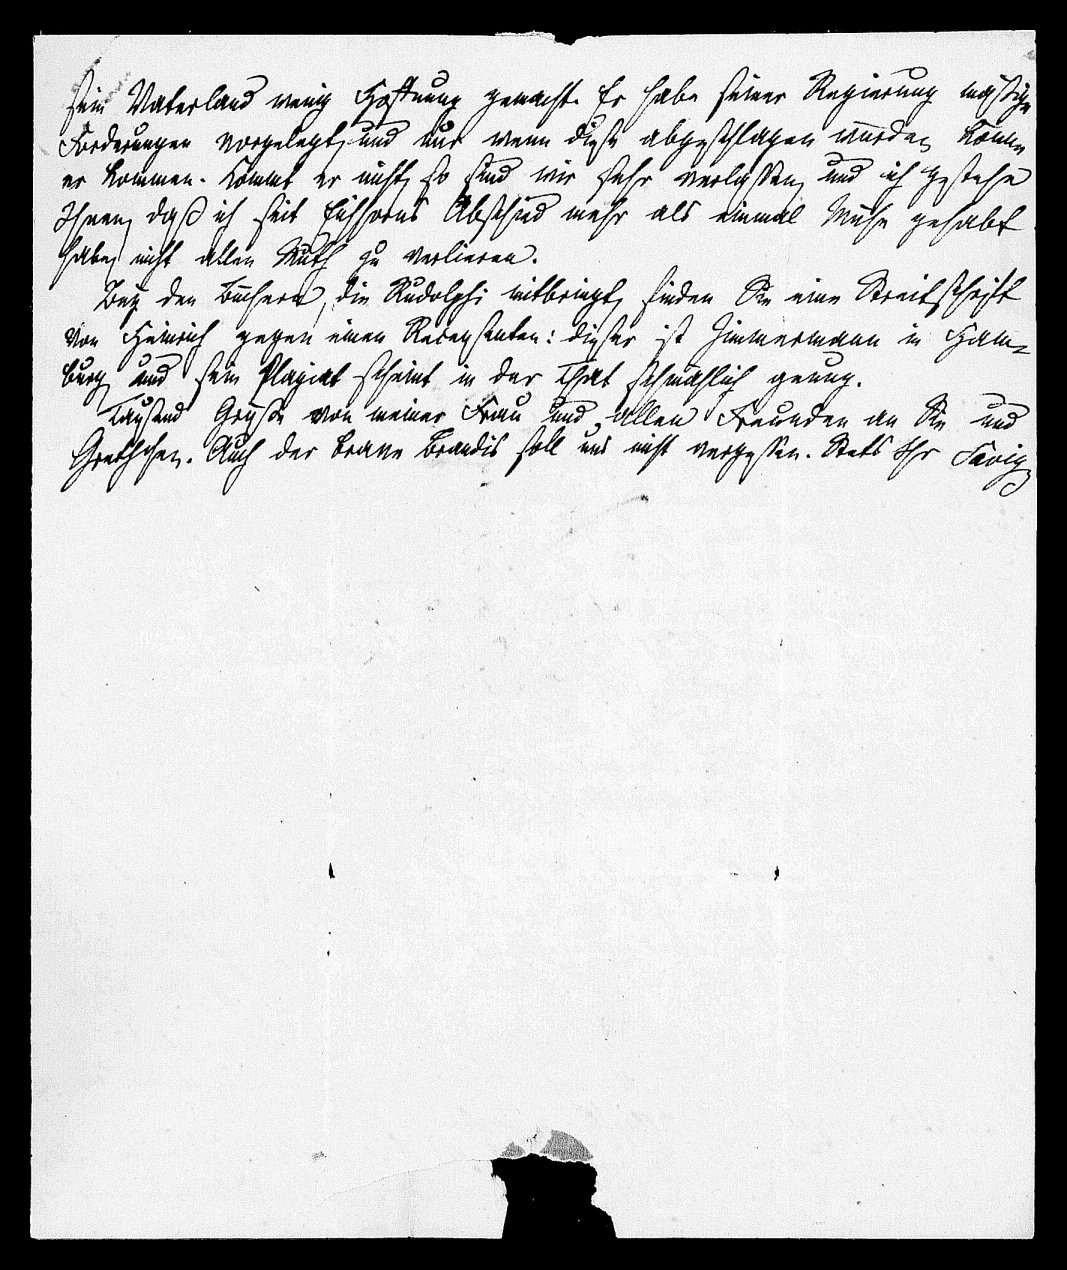 sein Vaterland wenig Hoffnung gemacht. Er habe seiner Regierung mäßige
Forderungen vorgelegt, und nur wenn diese abgeschlagen würden, könne
er kommen. Kommt er nicht, so sind wir sehr verlassen, und ich gestehe
Ihnen, daß ich seit Eichhorns Abschied mehr als einmal Mühe gehabt
habe, nicht allen Muth zu verlieren.
Bey den Büchern, die Rudolphi mitbringt, finden Sie eine Streitschrift
von Heinrich gegen einen Recensenten: dieser ist Zimmermann in Ham-
burg, und sein Plagiat scheint in der That schmählich genug.
Tausend Grüße von meiner Frau und allen Freunden an Sie und
Gretchen. Auch der brave Brandis soll uns nicht vergessen. Stets Ihr Savigny